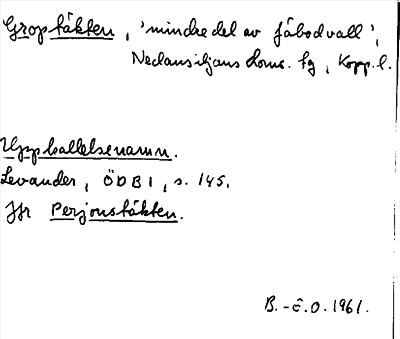 Groptäkten, 'mindre del av fäbodvall',
Nedansiljans doms. fg, Kopp. l.
Uppkallelsenamn.
Levander, ÖDB I, s. 145.
Jfr Perjonstäkten.
B.-E.O. 1961.